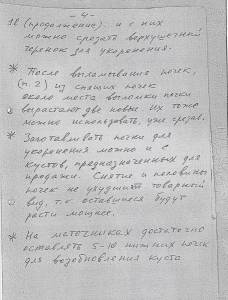 - 4 -
12 (продолжение). и с них
можно срезать верхушечный
черенок для укоренения.
* После выламывания почек,
(п. 2) из спящих почек
около места выломки почки
вырастают две новые. Их тоже
можно использовать, уже срезав.
* Заготавливать почки для
укоренения можно и с
кустов, предназначенных для
продажи. Снятие и половины
почек не ухудшит товарный
вид, т.к. оставшиеся будут
расти мощнее.
* На маточниках достаточно
оставлять 5-10 нижних почек
для возобновления куста